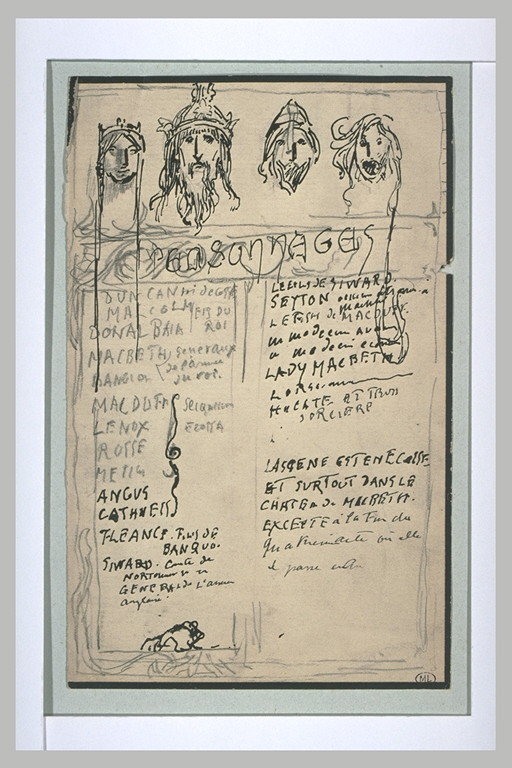 PERSONNAGES
DUNCAN roi de
MALCOLM FILS DU
DONALBAIN ROI
MACBETH Generaux
de l'armee
BANQUO du roi.
MACDUFF Seigneurs
LENOX ECOSSE
ROSSE
ANGUS
CATHNESS
FLEANCE. FILS DE
BANQUO.
SIWARD. Comte de
GENERAL de L'armee
anglaise.
LE FILS DE SIWARD.
SEYTON
LE FILS de MACDUFF.
un medecin
un medecin
LADY MACBETH
HECATE ET TROIS
SORCIERE
LA SCENE EST EN ECOSSE
ET SURTOUT DANS LE
CHATEAU de MACBETH.
EXCEPTE à la Fin du
où elle
se passe
ML